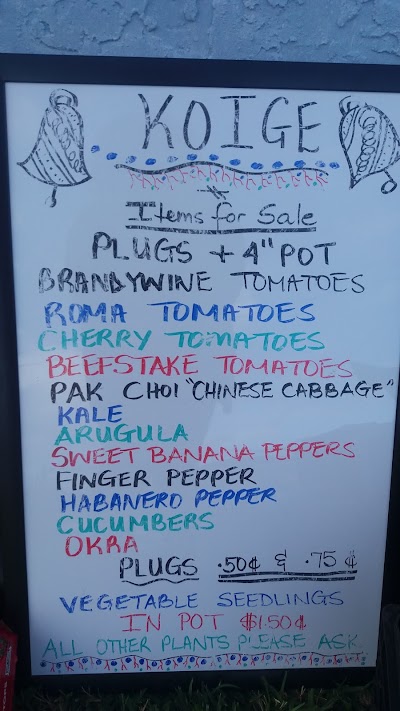 KOIGE
Items for Sale
PLUGS + 4" POT
BRANDYWINE TOMATOES
ROMA TOMATOES
CHERRY TOMATOES
BEEFSTAKE TOMATOES
PAK CHOI "CHINESE CABBAGE"
KALE
ARUGULA
SWEET BANANA PEPPERS
FINGER PEPPER
HABANERO PEPPER
CUCUMBERS
OKRA
PLUGS .50¢ & .75¢
VEGETABLE SEEDLINGS
IN POT $1.50¢
ALL OTHER PLANTS PLEASE ASK